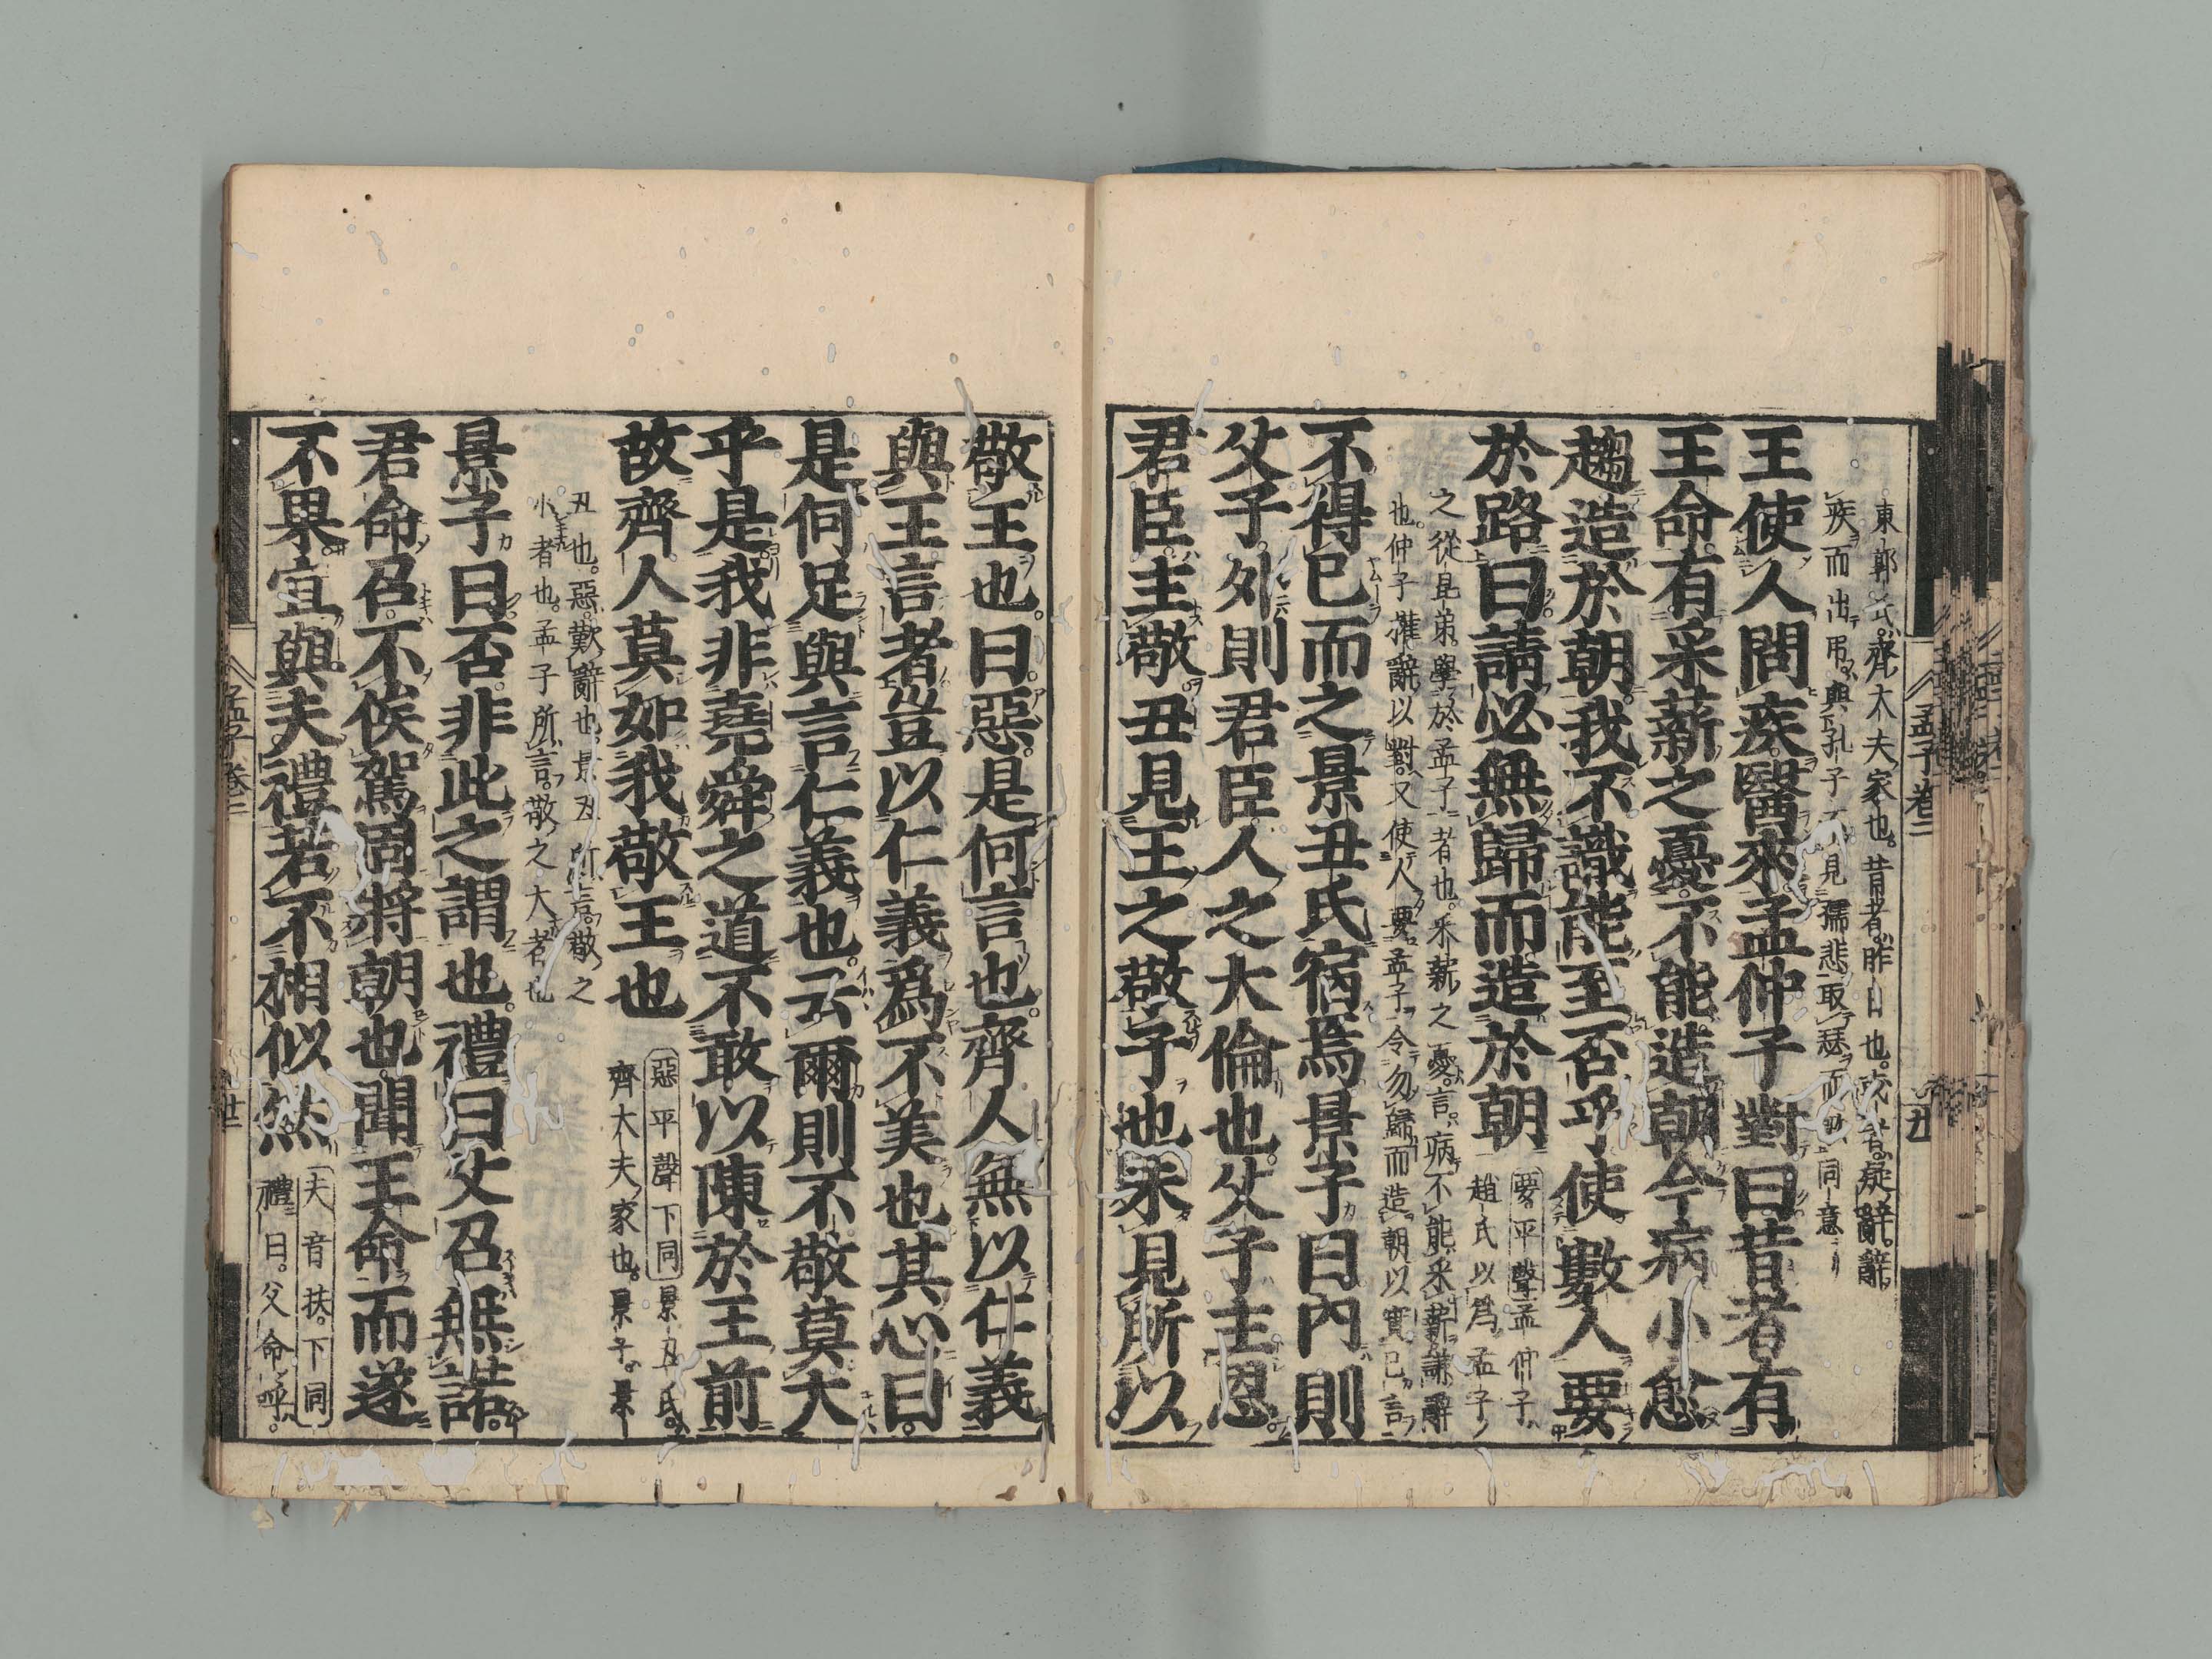 東郭氏。齊大夫家也。昔者。昨日也。或者。疑辭。辭
疾而出弔。與孔子不見孺悲取瑟而歌同意
王使人問疾。醫來。孟仲子對曰。昔者有
王命。有采薪之憂。不能造朝。今病小愈
趨造於朝。我不識能至否乎。使數人要
於路曰。請必無歸而造於朝
要。平聲。孟仲子。
趙氏以爲。孟子
之從昆弟。學於孟子者也。采薪之憂。言。病不能采薪。謙辭
也。仲子權辭以對。又使人要孟子令勿歸而造朝以實己言
不得已而之景丑氏宿焉。景子曰。內則
父子。外則君臣。人之大倫也。父子主恩。
君臣主敬。丑見王之敬子也。未見所以
敬王也。曰。惡。是何言也。齊人無以仁義
與王言者。豈以仁義爲不美也。其心曰。
是何足與言仁義也。云爾則不敬莫大
乎是。我非堯舜之道不敢以陳於王前
故齊人莫如我敬王也
惡平聲下同 景丑氏。
齊大夫家也。景子。景
丑也。惡。歎辭也。景丑所言。敬之
小者也。孟子所言。敬之大者也
景子曰。否。非此之謂也。禮曰。父召無諾。
君命召。不俟駕。固將朝也。聞王命而遂
不果。宜與夫禮若不相似然
夫音扶。下同
禮曰。父命呼。
孟子卷二
廿
孟子卷二
廿